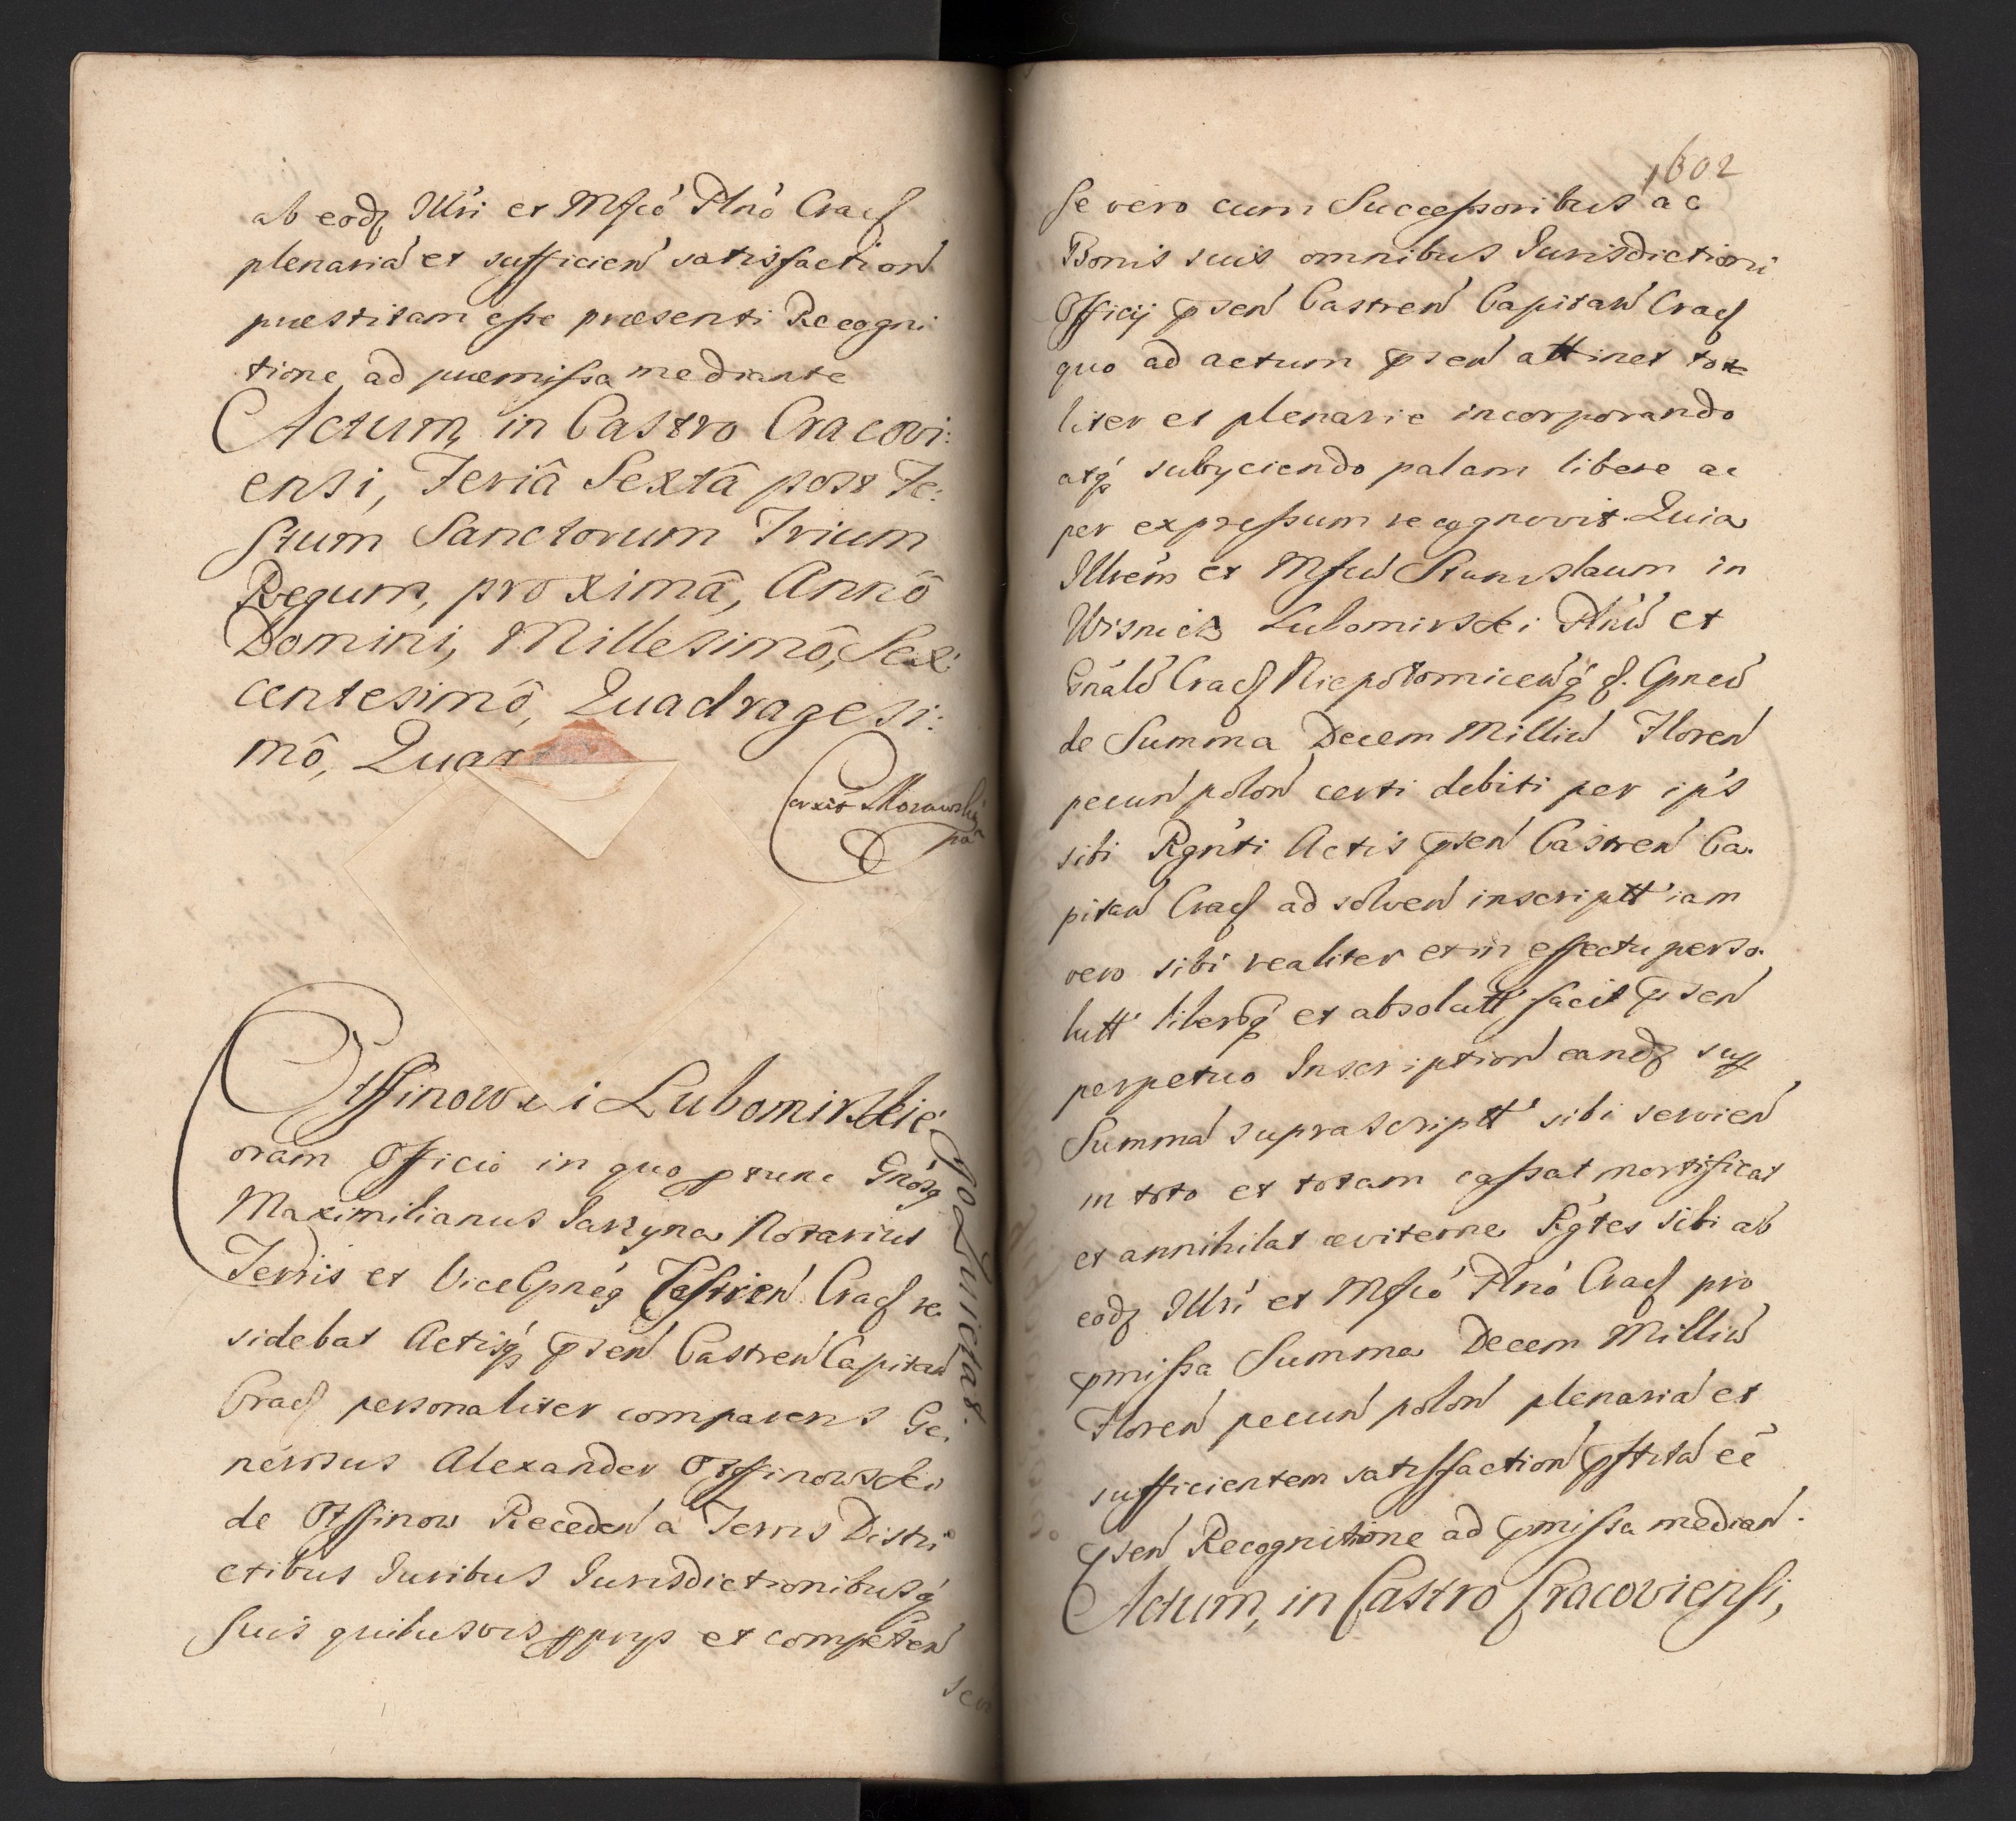 ab eodꝫ Illri et Mfcó Plnó Cracꝭ
plenariá et sufficień satisfactioń
praestitam esse praesenti Recogni
tione ad praemissa mediante
Actum, in Castro Cracovi:
ensi, Feriâ Sextâ post Fe:
stum Sanctorum Trium
Regum, proximâ, Annô
Domini, Millesimô, Sex:
centesimô, Quadragesi:
mô, Quar
Otffinowski Lubomirskie
Quietat.
oram Officio in quo ꝑ tunc Gnósꝫ
Maximilianus Jarzyna Notarius
Terris et ViceCpneꝫ Cracꝭ re
sidebat Actisqꝫ p̄sen̄ Castreń Capitań
Cracꝭ personaliter comparens Ge
nerosus Alexander Otffinowski
de Otffinow Recedeń a Terris Distri
ctibus Juribus Jurisdictionibusqꝫ
suis quibusvis ꝓprys et competeń
1602
se vero cum Successoribus ac
Bonis suis omnibus Jurisdictioni
Officij p̄seń Castreń Capitań Cracꝭ
quo ad actum p̄seń attinet tota
liter et plenarie incorporando
atqꝫ subyciendo palam libere ac
per expressum recognovit Quia
Illrem et Mfcú Stanislaum in
Wisnicz Lubomirski Plnú et
Gnálú Cracꝭ Niepołomiceńqꝫ ꝭ. Cpneú
de Summa Decem Milliú Floreń
pecuń poloń certi debiti per ip's
sibi Rgnti Actis p̄seń Castreń Ca.
pitań Cracꝭ ad solveń inscriptt' iam
vero sibi realiter et in effectu perso.
lutt' liberúqꝫ et absolutt' facit p̄seń
perpetuo Inscriptioń eandꝫ suꝑ
Summá suprascriptt' sibi servień
in toto et totam cassat mortificat
et annihilat aeviterne Rg̃tes sibi ab
eodꝫ Illri et Mfcó Plnó Cracꝭ pro
p̄missa Summa Decem Milliú
Floreń pecuń poloń plenariá et
sufficientem satisfactioń p̄stitá eē
p̄seń Recognitione ad p̄missa mediań.
Actum, in Castro Cracoviensi,